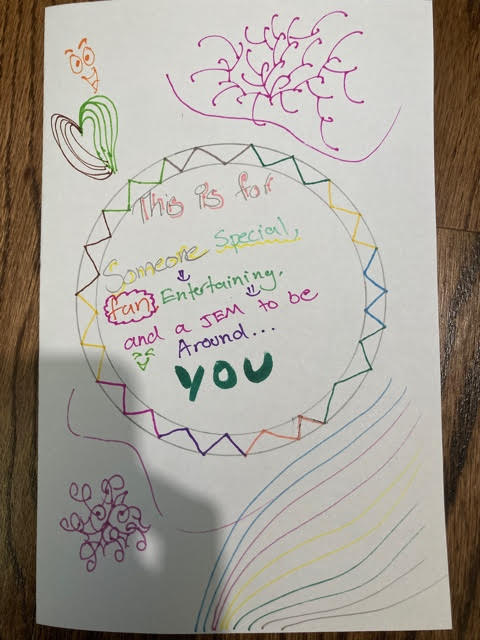 This is for
Someone Special,
fun Entertaining,
and a JEM to be
Around...
YOU